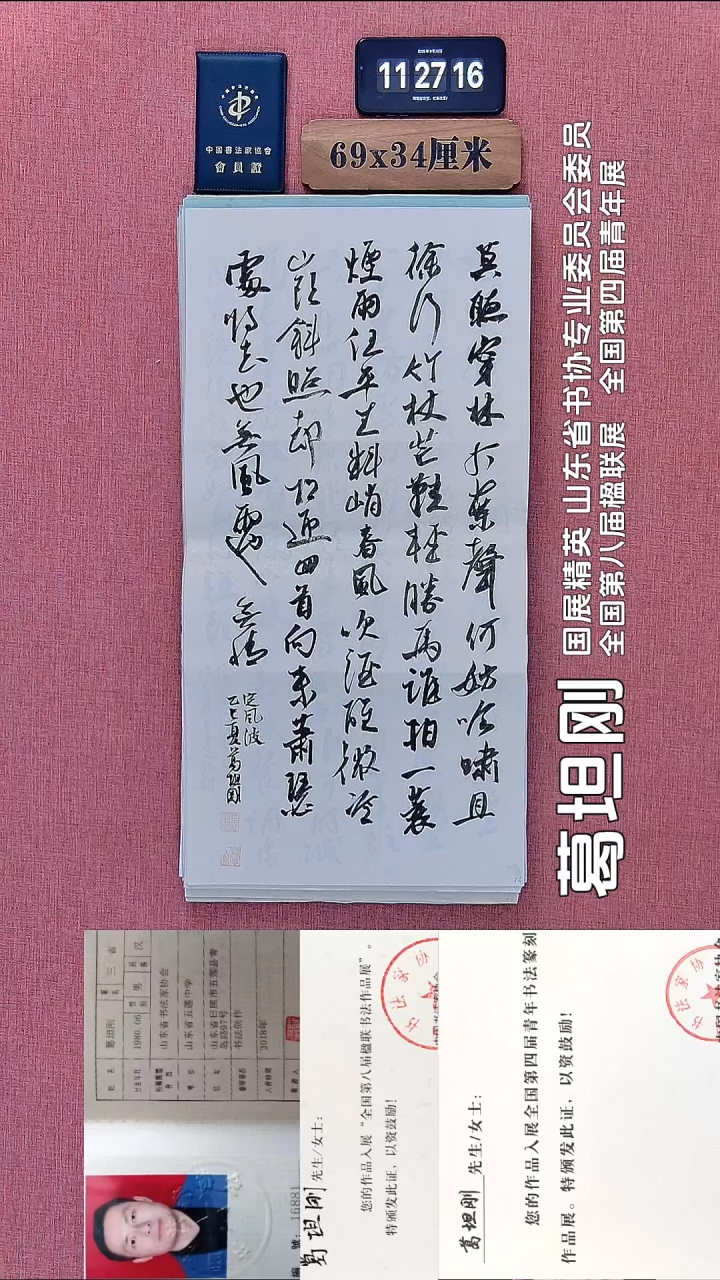 中國書法家協會
會員證
11 27 16
69x34厘米
莫聽穿林打葉聲何妨吟嘯且
徐行竹杖芒鞋輕勝馬誰怕一蓑
煙雨任平生料峭春風吹酒醒微冷
山頭斜照却相迎回首向來蕭瑟
處歸去也無風雨也無晴
定風波
乙巳夏葛坦剛
葛坦刚
国展精英 山东省书协专业委员会委员
全国第八届楹联展 全国第四届青年展
姓名 葛坦刚
1980.06 性别 男 汉
山东省书法家协会
山东省五莲中学
山东省日照市五莲县青
岛路97号
书法创作
入会时间 2018年
编号: 16881
葛坦刚 先生/女士:
您的作品入展“全国第八届楹联书法作品展”。
特颁发此证，以资鼓励!
葛坦刚 先生/女士:
您的作品入展全国第四届青年书法篆刻
作品展。特颁发此证，以资鼓励!